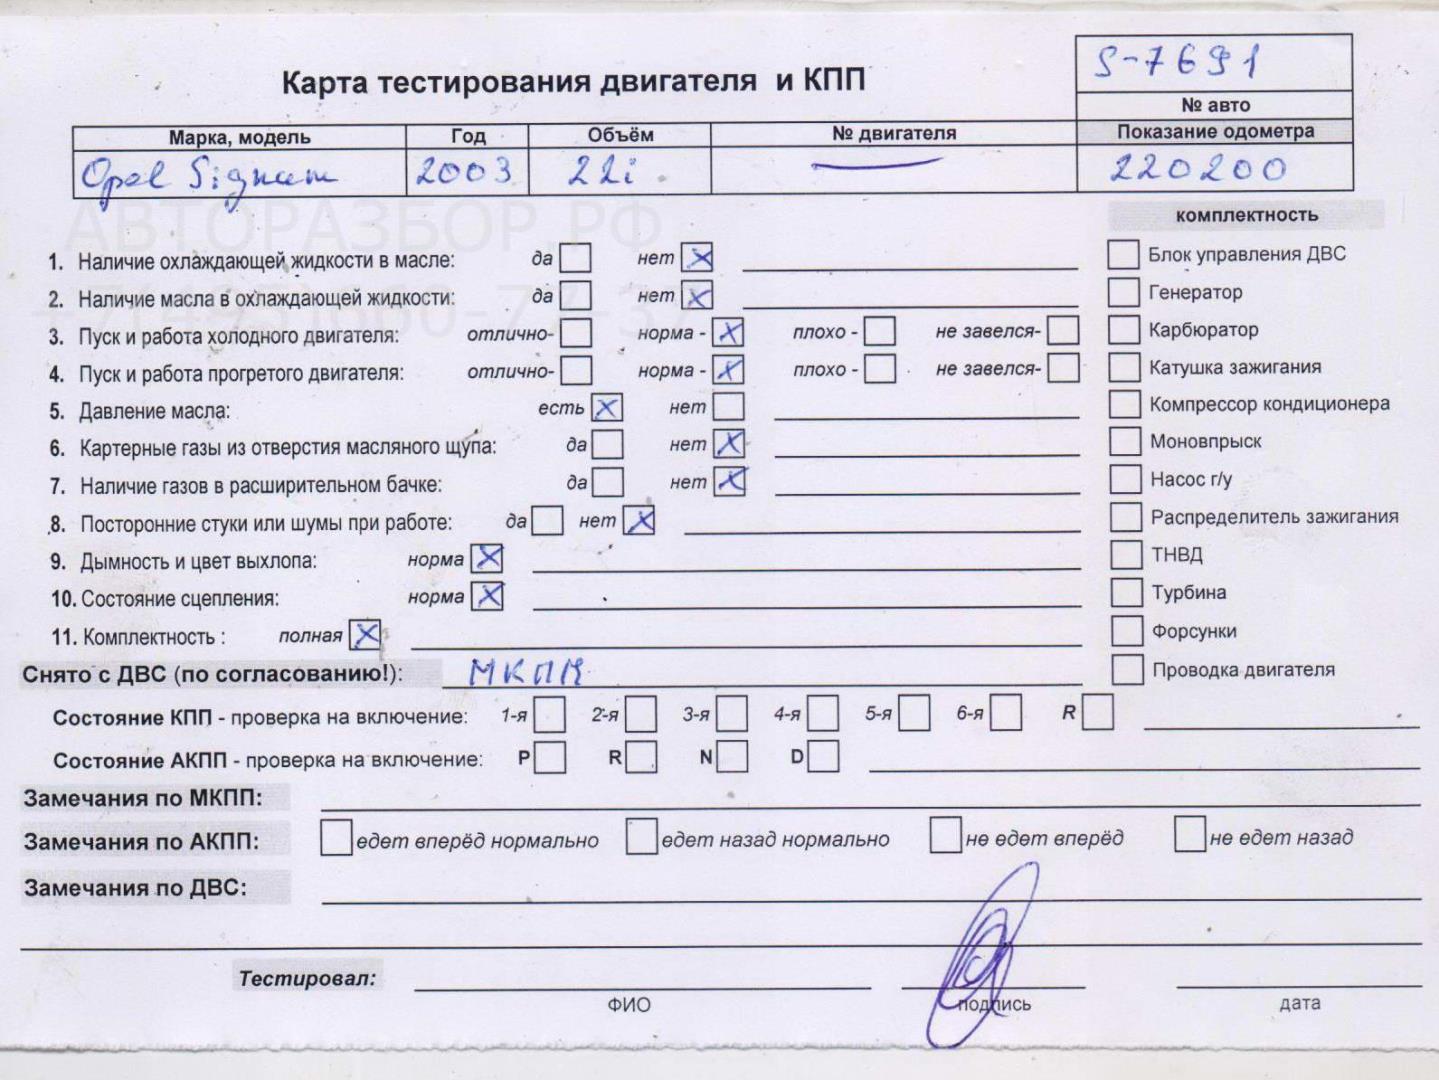 S-7691
Карта тестирования двигателя и КПП
№ авто
Марка, модель Год Объём № двигателя Показание одометра
Opel Signum 2003 22i — 220200
АВТОРАЗБОР.РФ
комплектность
1. Наличие охлаждающей жидкости в масле: да нет X
Блок управления ДВС
+7(495)660-77-37
2. Наличие масла в охлаждающей жидкости: да нет X
Генератор
3. Пуск и работа холодного двигателя: отлично- норма - X плохо - не завелся-
Карбюратор
4. Пуск и работа прогретого двигателя: отлично- норма - X плохо - не завелся-
Катушка зажигания
5. Давление масла: есть X нет
Компрессор кондиционера
6. Картерные газы из отверстия масляного щупа: да нет X
Моновпрыск
7. Наличие газов в расширительном бачке: да нет X
Насос г/у
8. Посторонние стуки или шумы при работе: да нет X
Распределитель зажигания
9. Дымность и цвет выхлопа: норма X
ТНВД
10. Состояние сцепления: норма X
Турбина
11. Комплектность : полная X
Форсунки
Снято с ДВС (по согласованию!): МКПП
Проводка двигателя
Состояние КПП - проверка на включение: 1-я 2-я 3-я 4-я 5-я 6-я R
Состояние АКПП - проверка на включение: P R N D
Замечания по МКПП:
Замечания по АКПП: едет вперёд нормально едет назад нормально не едет вперёд не едет назад
Замечания по ДВС:
Тестировал:
ФИО подпись дата